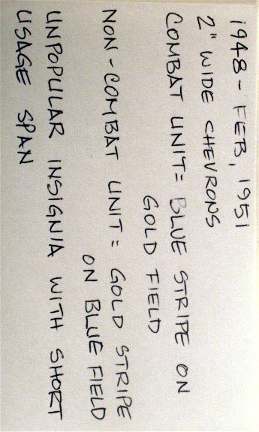 1948 - FEB, 1951
2" WIDE CHEVRONS
COMBAT UNIT = BLUE STRIPE ON
GOLD FIELD
NON-COMBAT UNIT = GOLD STRIPE
ON BLUE FIELD
UNPOPULAR INSIGNIA WITH SHORT
USAGE SPAN